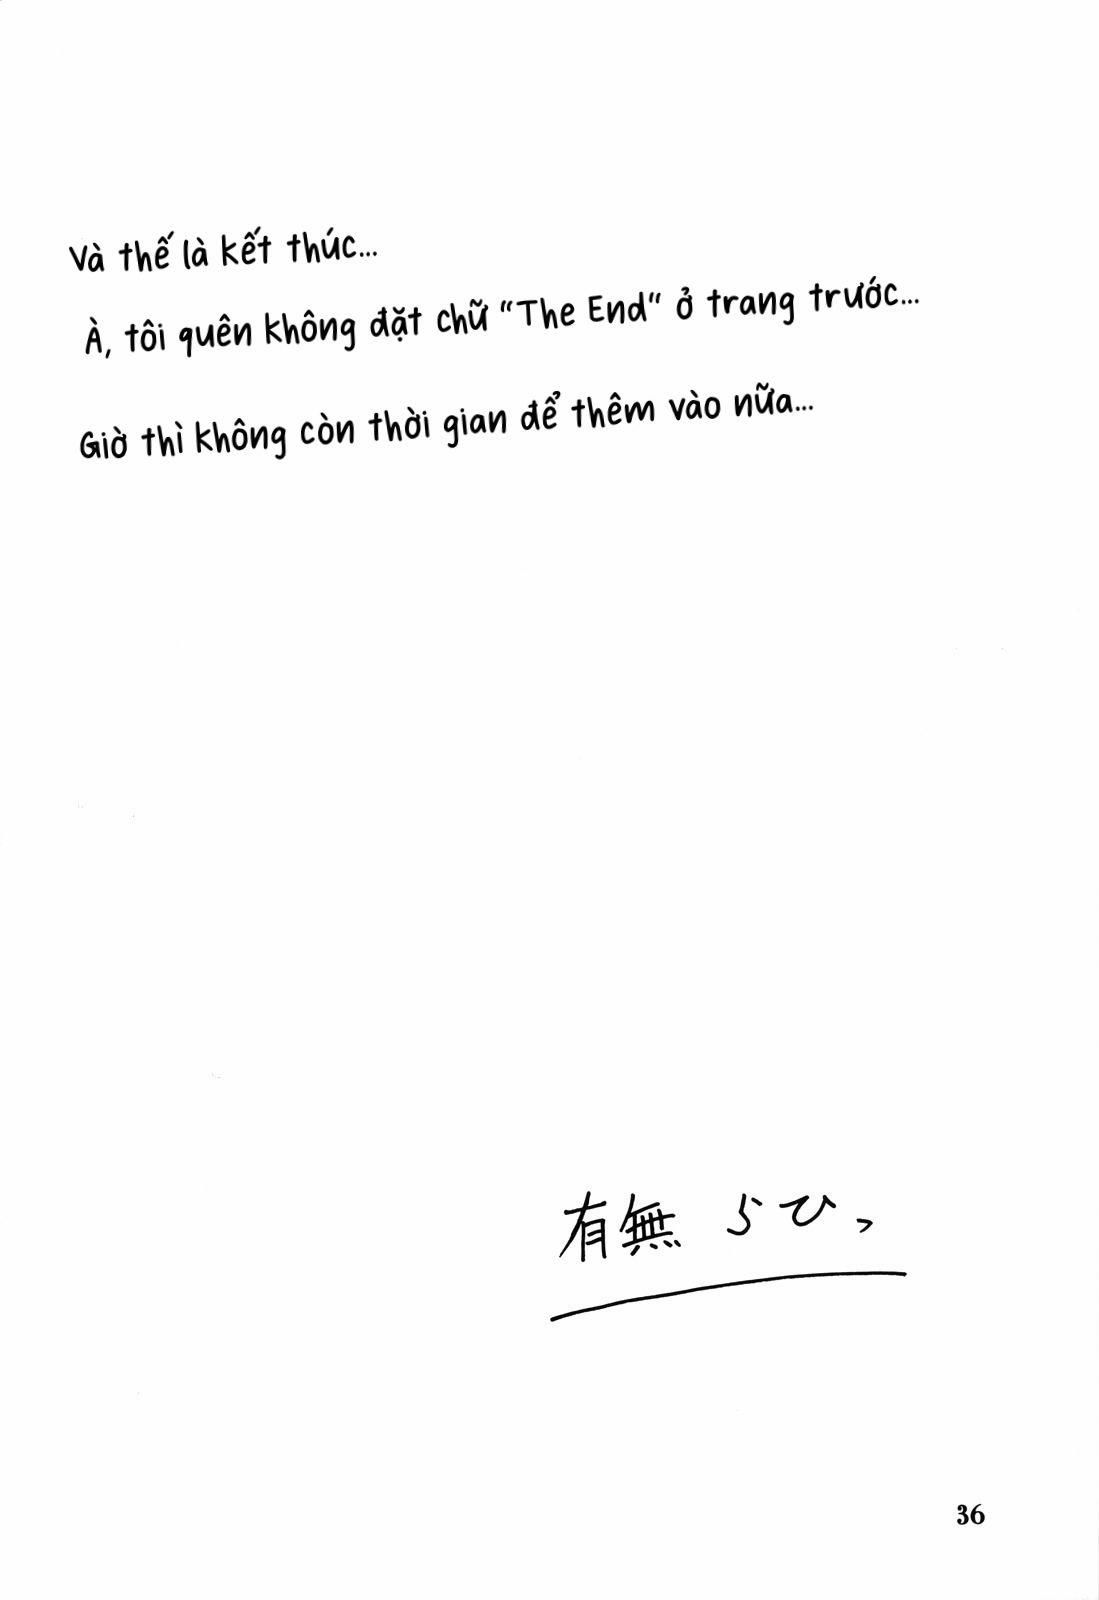 Và thế là kết thúc...
À, tôi quên không đặt chữ "The End" ở trang trước...
Giờ thì không còn thời gian để thêm vào nữa...
有無 らひっ
36